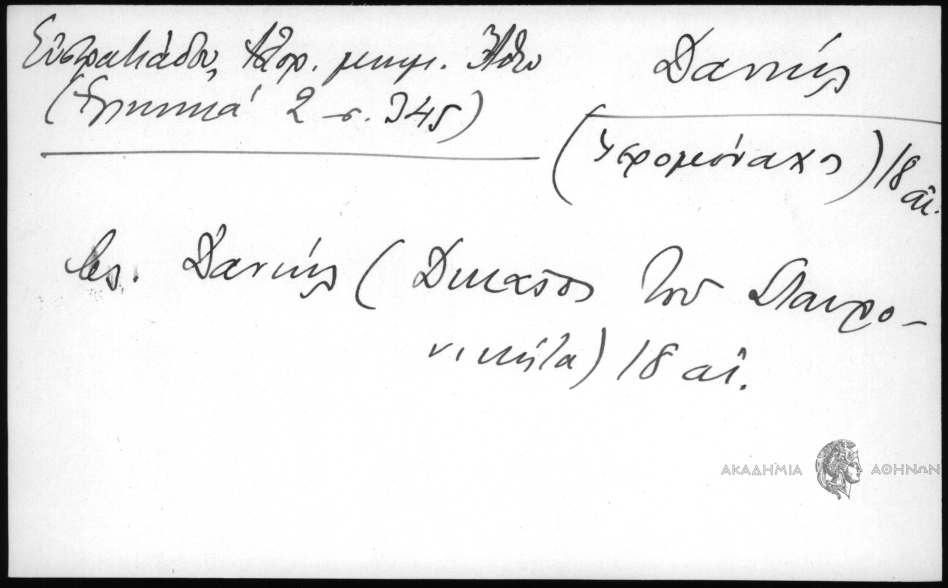 Εὐστρατιάδου, Ἁγιορ. μνημ. Ἄθω
(Ἑλληνικά 2 σ. 345)
Δανιήλ
(Ἱερομόναχος) 18 αἰ.
βλ. Δανιήλ (Δικαῖος τοῦ Σταυρο-
νικήτα) 18 αἰ.
ΑΚΑΔΗΜΙΑ ΑΘΗΝΩΝ